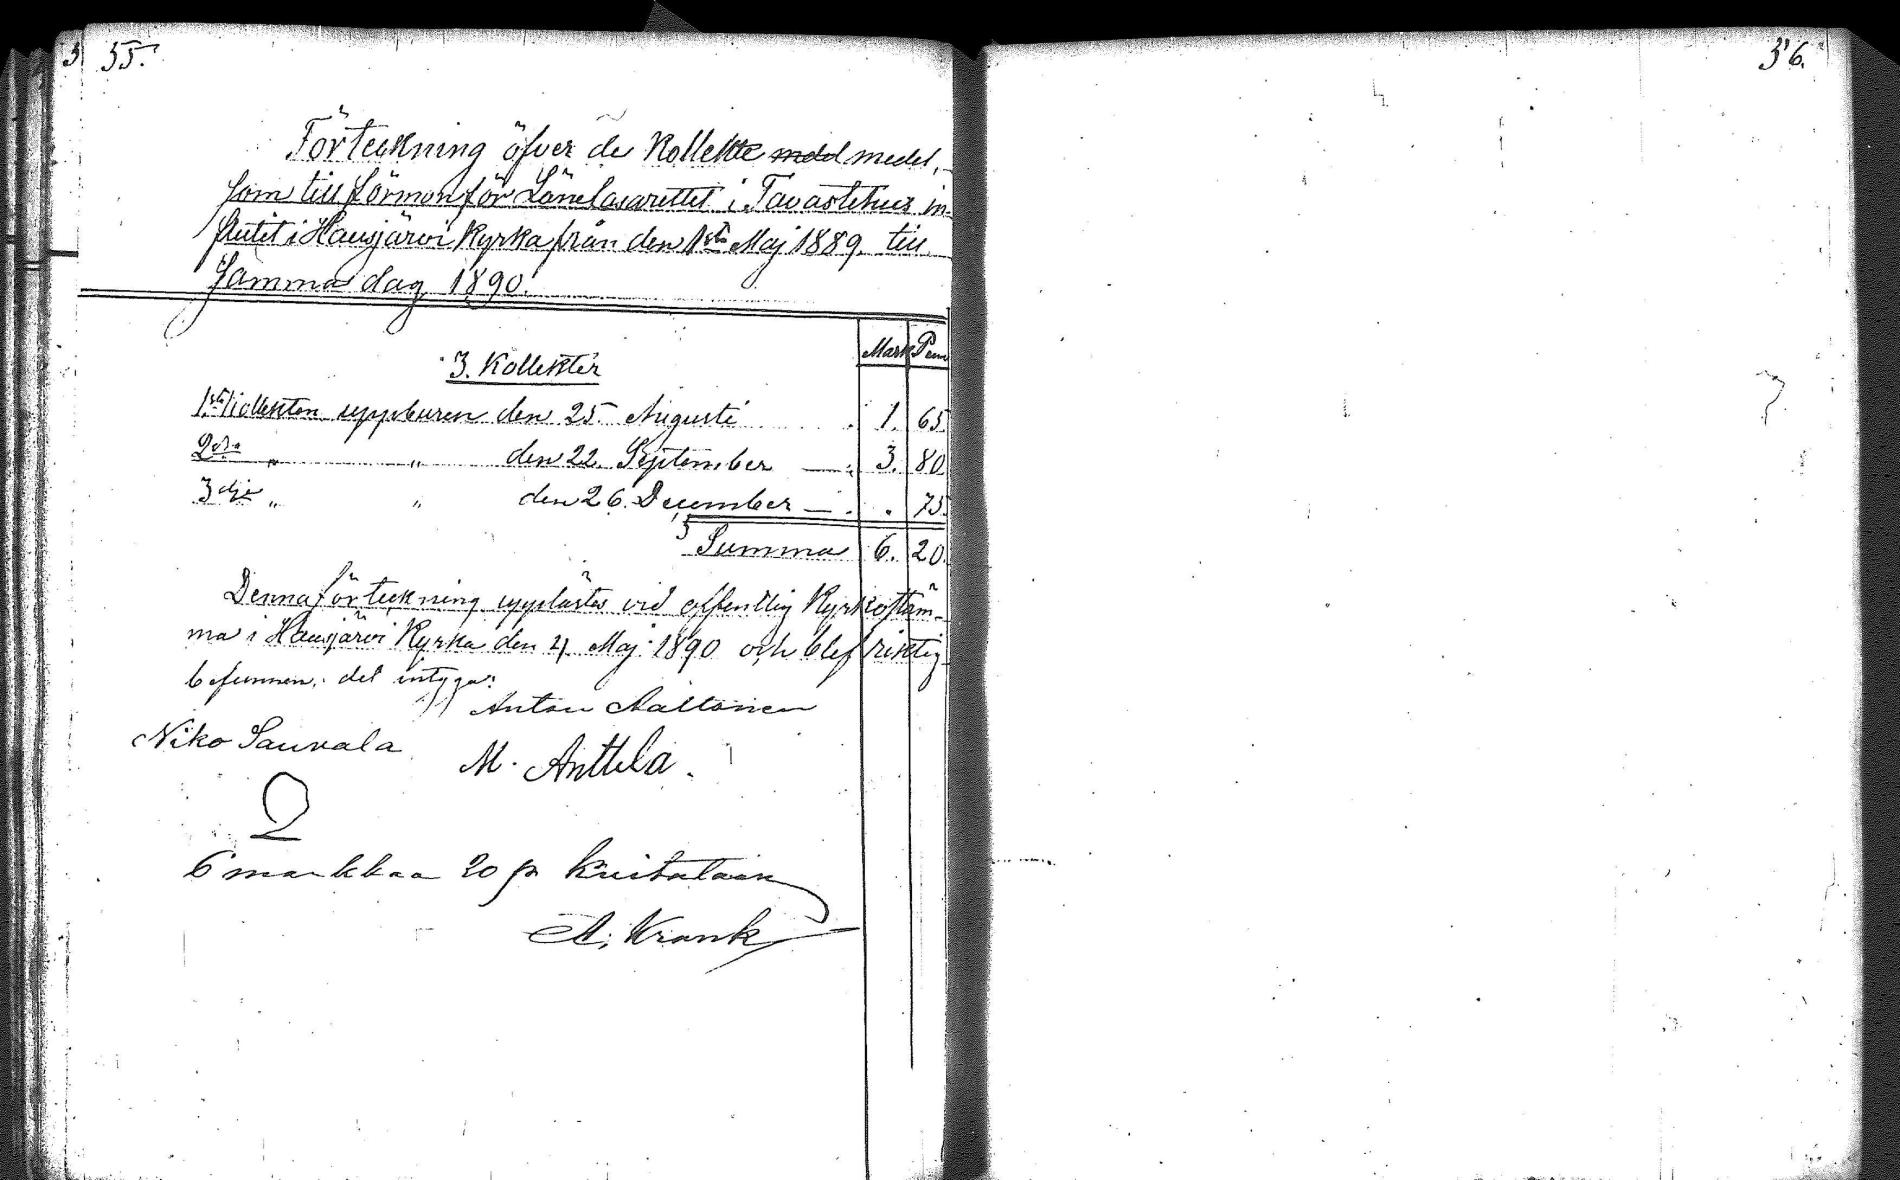 35.
Förteckning öfver de Kollekte medel medel,
som till förmon för Länelasarettet i Tavastehus in-
flutit i Hausjärvi Kyrka från den 1sta Maj 1889. till
Samma dag 1890.
Mark Penni
3. Kollekter
1sta Kollekten uppburen den 25. Augusti 1. 65.
2dra „ „ den 22. September — 3. 80.
3dje „ „ den 26. December — . 75.
Summa 6. 20.
Denna förteckning upplästes vid offentlig Kyrkostäm-
ma i Hausjärvi Kyrka den 4 Maj 1890 och blef riktig
befunnen; det intyga:
Anton Aaltonen
Niko Sauvala
M. Anttila.
6 markkaa 20 p. kuitataan
A. Krank
36.